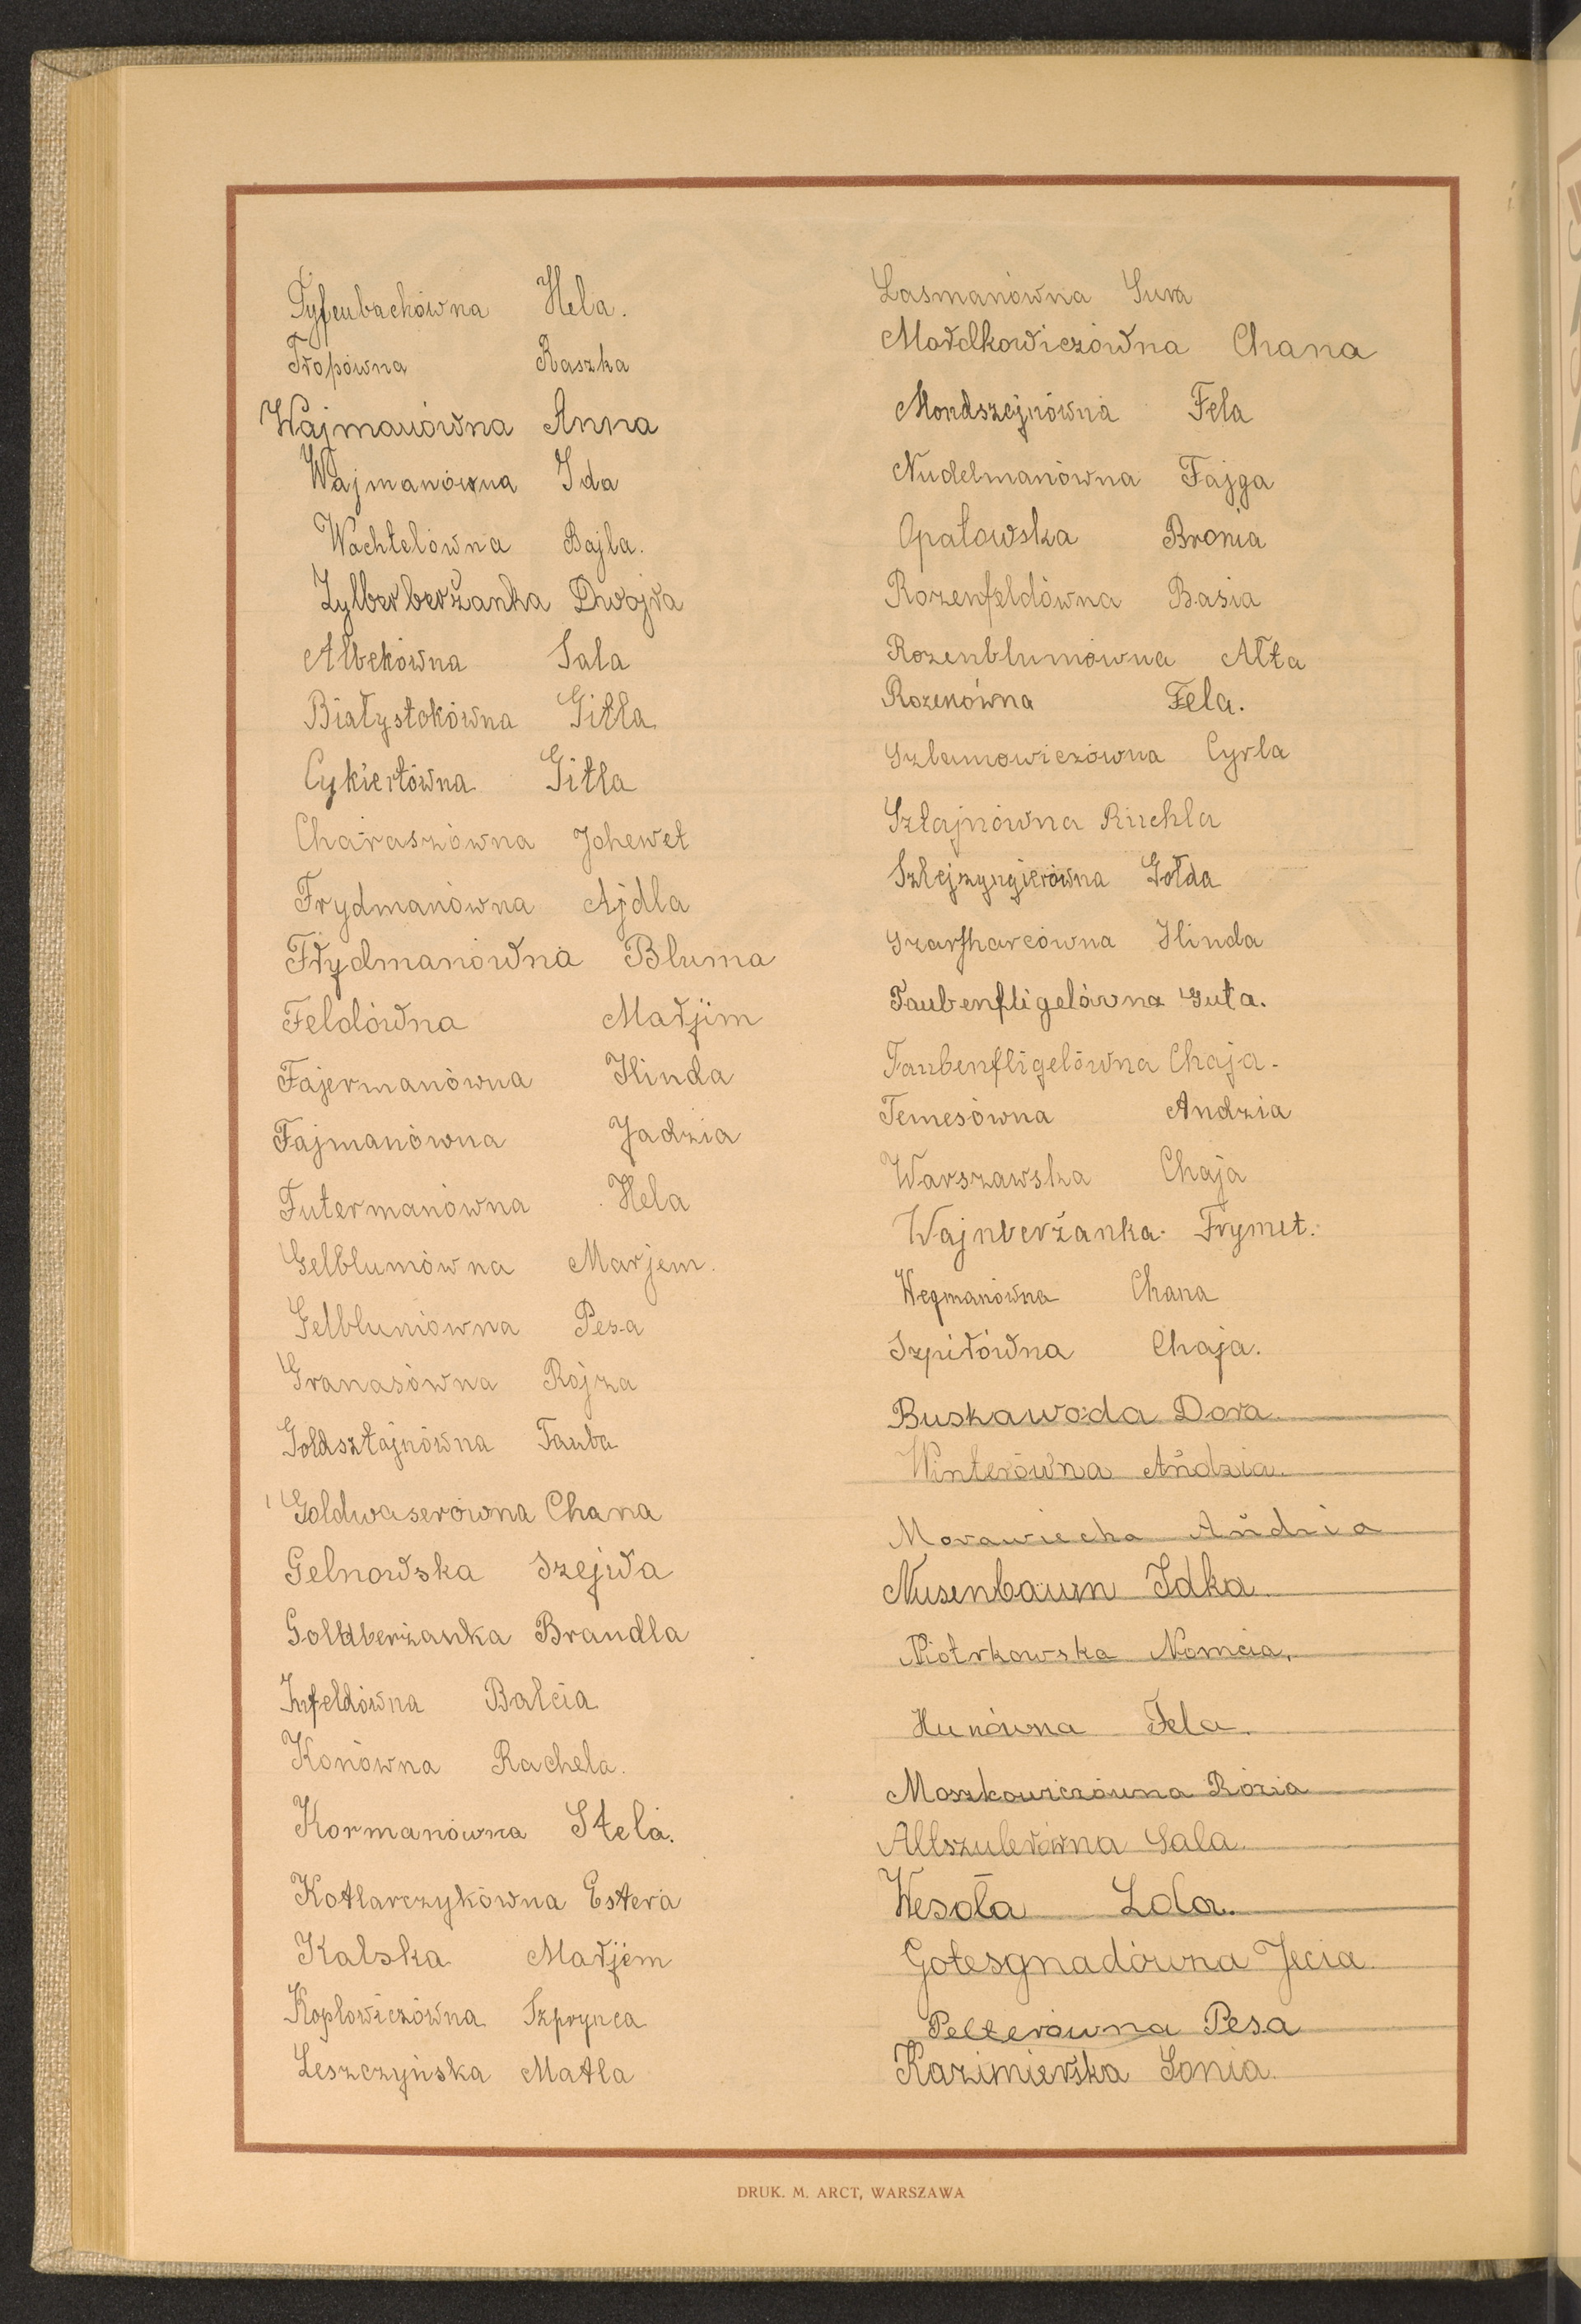 Tyfenbachówna Hela.
Tropówna Raszka
Wajmanówna Anna
Wajmanówna Ida
Wachtelówna Bajla.
Zylberberżanka Dwojra
Albekówna Sala
Białystokówna Gitla
Cykiertówna Gitla
Charaszówna Johewet
Frydmanówna Ajdla
Frydmanówna Bluma
Feldówna Marjim
Fajermanówna Hinda
Fajmanówna Jadzia
Futermanówna Hela
Gelblumówna Marjem.
Gelblumówna Pesa
Granasówna Rojza
Goldsztajnówna Tauba
Goldwaserówna Chana
Gelnowska Szejwa
Goldberżanka Brandla
Infeldówna Balcia
Konówna Rachela.
Kormanówna Stela.
Kotlarczykówna Estera
Kalska Marjem
Koplowiczówna Szprynca
Leszczyńska Matla
Lasmanówna Sura
Mordkowiczówna Chana
Mondszejnówna Fela
Nudelmanówna Fajga
Opatowska Bronia
Rozenfeldówna Basia
Rozenblumówna Ałta
Rozenówna Fela.
Szlamowiczówna Cyrla
Sztajnówna Ruchla
Szlejzyngierówna Gołda
Szarfharcówna Hinda
Taubenfligelówna Guta.
Taubenfligelówna Chaja.
Temesówna Andzia
Warszawska Chaja
Wajnberżanka Frymet.
Wegmanówna Chana
Szpirówna Chaja.
Buskawoda Dora
Winterówna Ańdzia.
Morawiecka Ańdzia
Nusenbaum Idka.
Piotrkowska Nomcia.
Hunówna Fela.
Moszkowiczówna Rózia
Altszulerówna Sala.
Wesoła Lola.
Gotesgnadówna Jecia
Pelterówna Pesa
Kazimierska Sonia.
DRUK. M. ARCT, WARSZAWA